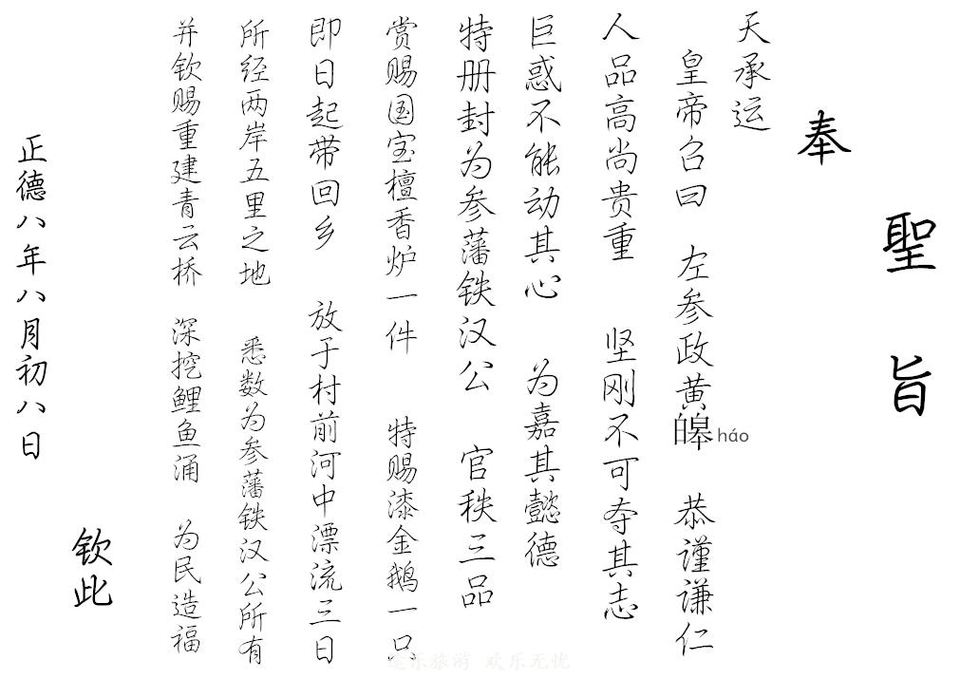 聖旨
奉
天承运
皇帝召曰 左参政黄皞háo 恭谨谦仁
人品高尚贵重 坚刚不可夺其志
巨惑不能动其心 为嘉其懿德
特册封为参藩铁汉公 官秩三品
赏赐国宝檀香炉一件 特赐漆金鹅一只
即日起带回乡 放于村前河中漂流三日
所经两岸五里之地 悉数为参藩铁汉公所有
并钦赐重建青云桥 深挖鲤鱼涌 为民造福
钦此
正德八年八月初八日
乐旅游 欢乐无忧